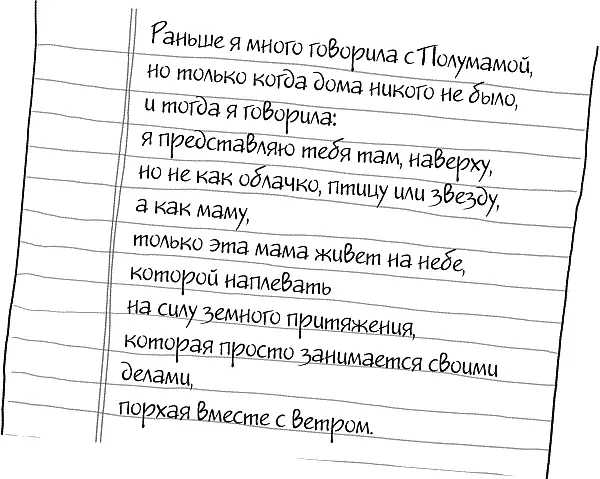 Раньше я много говорила с Полумамой,
но только когда дома никого не было,
и тогда я говорила:
я представляю тебя там, наверху,
но не как облачко, птицу или звезду,
а как маму,
только эта мама живет на небе,
которой наплевать
на силу земного притяжения,
которая просто занимается своими
делами,
порхая вместе с ветром.